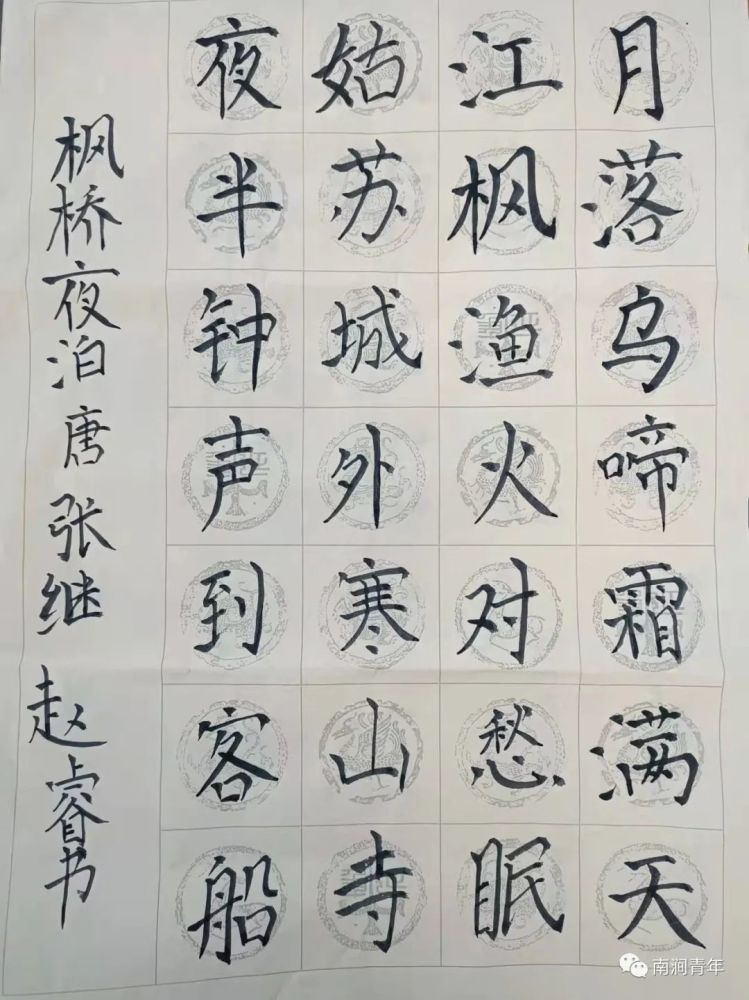 月落乌啼霜满天
江枫渔火对愁眠
姑苏城外寒山寺
夜半钟声到客船
枫桥夜泊 唐 张继 赵睿书
南涧青年